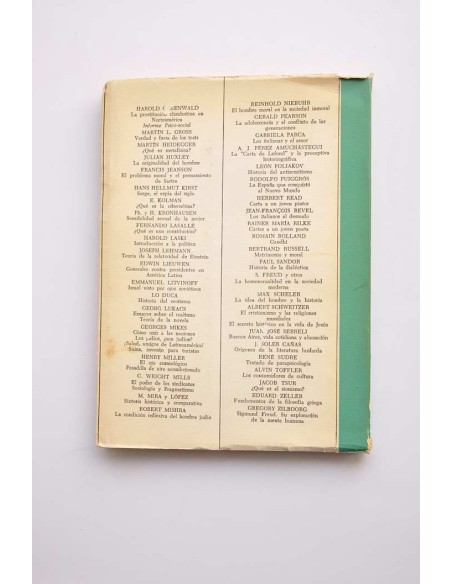 HAROLD
La prostitución clandestina en
Norteamérica
Informe Psico-social
MARTIN L. GROSS
Verdad y farsa de los tests
MARTIN HEIDEGGER
¿Qué es metafísica?
JULIAN HUXLEY
La originalidad del hombre
FRANCIS JEANSON
El problema moral y el pensamiento
de Sartre
HANS HELLMUT KIRST
Sorge, el espía del siglo
E. KOLMAN
¿Qué es la cibernética?
Ph. y H. KRONHAUSEN
Sensibilidad sexual de la mujer
FERNANDO LASALLE
¿Qué es una constitución?
HAROLD LASKI
Introducción a la política
JOSEPH LEHMANN
Teoría de la relatividad de Einstein
EDWIN LIEUWEN
Generales contra presidentes en
América Latina
EMMANUEL LITVINOFF
Israel visto por los soviéticos
LO DUCA
Historia del erotismo
GEORG LUKACS
Ensayos sobre el realismo
Teoría de la novela
GEORGES MIKES
Cómo unir a las naciones
Los judíos,
¡Salud, amigos de Latinoamérica!
Suiza, invento para turistas
HENRY MILLER
El ojo cosmológico
Pesadilla de aire acondicionado
C. WRIGHT MILLS
El poder de los sindicatos
Sociología y Pragmatismo
M. MIRA y LÓPEZ
Síntesis histórica y comparativa
ROBERT MISRHI
La condición reflexiva del hombre judío
REINHOLD NIEBUHR
El hombre moral en la sociedad inmoral
GERALD PEARSON
La adolescencia y el conflicto de las
generaciones
GABRIELA PARCA
Los italianos y el amor
A. J. PÉREZ AMUCHASTEGUI
La "Carta de Lafond" y la preceptiva
historiográfica
LEON POLIAKOV
Historia del antisemitismo
RODOLFO PUIGGRÓS
La España que conquistó
al Nuevo Mundo
HERBERT READ
Carta a un joven pintor
JEAN-FRANÇOIS REVEL
Los italianos al desnudo
RAINER MARÍA RILKE
Cartas a un joven poeta
ROMAIN ROLLAND
Gandhi
BERTRAND RUSSELL
Matrimonio y moral
PAUL SANDOR
Historia de la dialéctica
S. FREUD y otros
La homosexualidad en la sociedad
moderna
MAX SCHELER
La idea del hombre y la historia
ALBERT SCHWEITZER
El cristianismo y las religiones
mundiales
El secreto histórico en la vida de Jesús
JUAN JOSÉ SEBRELI
Buenos Aires, vida cotidiana y alienación
J. SOLER CAÑAS
Orígenes de la literatura lunfarda
RENÉ SUDRE
Tratado de parapsicología
ALVIN TOFFLER
Los consumidores de cultura
JACOB TSUR
¿Qué es el sionismo?
EDUARD ZELLER
Fundamentos de la filosofía griega
GREGORY ZILBOORG
Sigmund Freud. Su exploración
de la mente humana